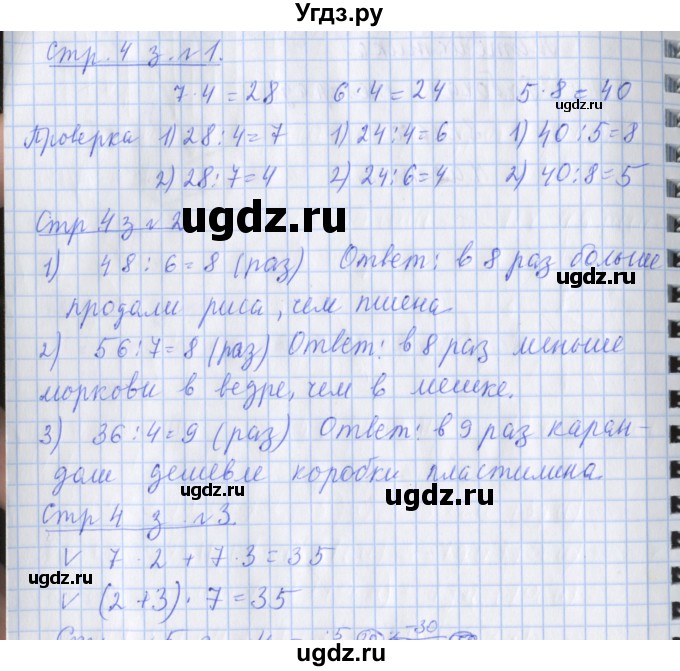 Угдз.ру
Стр. 4 з. №1.
7·4=28 6·4=24 5·8=40
ugdz.ru
Проверка 1) 28:4=7 1) 24:4=6 1) 40:5=8
2) 28:7=4 2) 24:6=4 2) 40:8=5
Стр 4 з №2
ugdz.ru
1) 48:6=8 (раз) Ответ: в 8 раз больше
ugdz.ru
продали риса, чем пшена.
2) 56:7=8 (раз) Ответ: в 8 раз меньше
моркови в ведре, чем в мешке.
3) 36:4=9 (раз) Ответ: в 9 раз каран-
даш дешевле коробки пластилина.
ugdz.ru
ugdz.ru
Стр 4 з. №3.
V 7·2+7·3=35
ugdz.ru
V (2+3)·7=35
ugdz.ru
-30
ugdz.ru